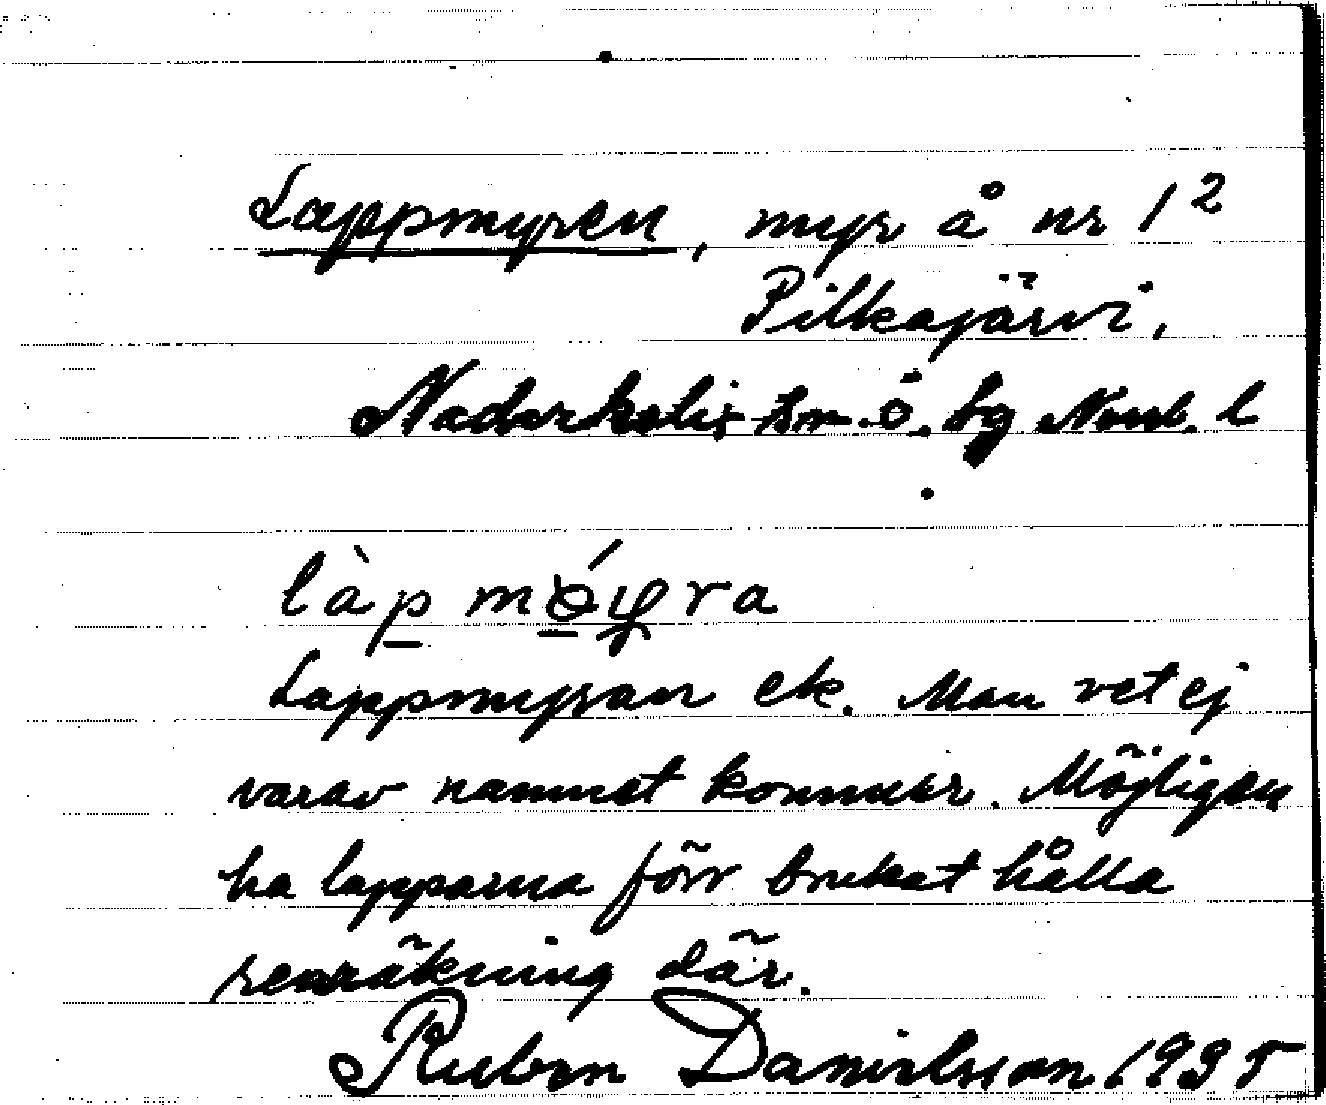 Lappmyren, myr å nr 1²
Pilkajärvi,
Nederkalix sn. ö. bg Norrb. l
làp mǿyra
Lappmyran ek. Man vet ej
varav namnet kommer. Möjligen
ha lapparna förr brukat hålla
renräkning där.
Ruben Danielsson 1935